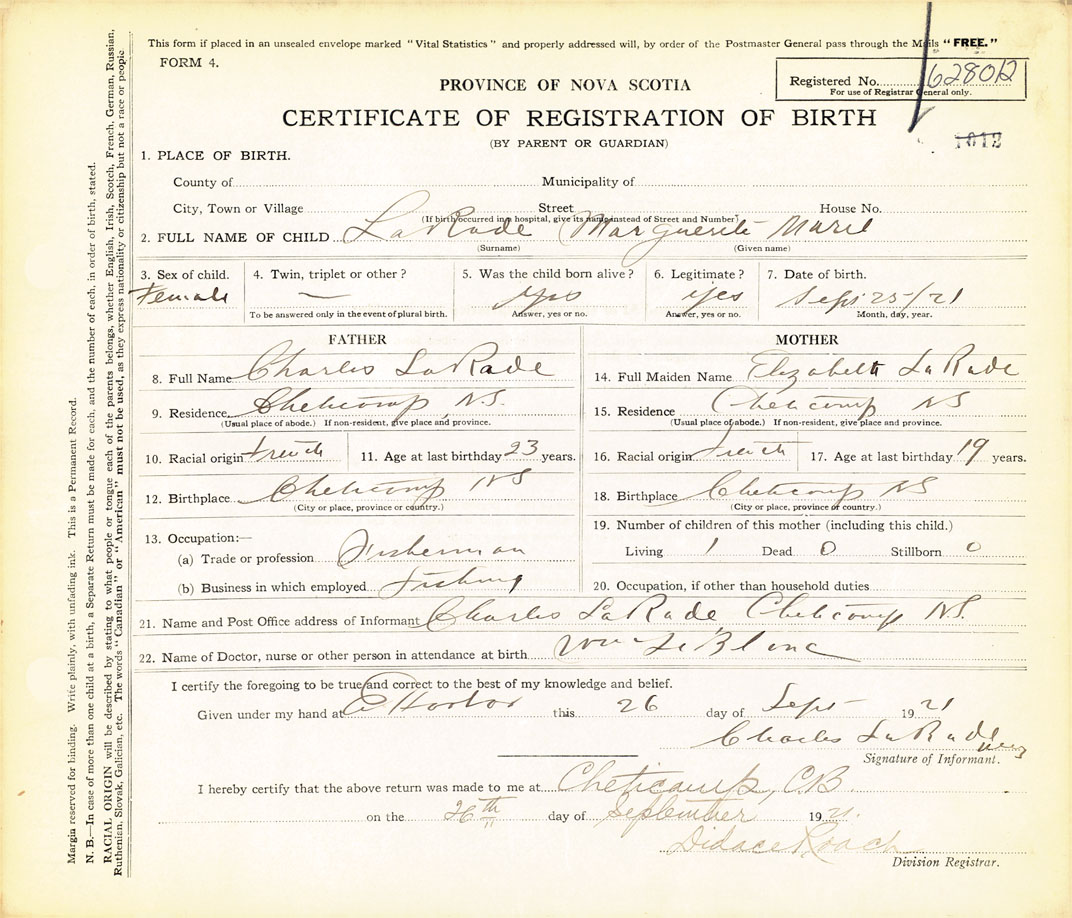 This form if placed in an unsealed envelope marked "Vital Statistics" and properly addressed will, by order of the Postmaster General pass through the Mails "FREE."
FORM 4.
PROVINCE OF NOVA SCOTIA
Registered No. 62802
For use of Registrar General only.
CERTIFICATE OF REGISTRATION OF BIRTH
(BY PARENT OR GUARDIAN)
1012
1. PLACE OF BIRTH.
County of Municipality of
City, Town or Village Street House No.
(If birth occurred in a hospital, give its name instead of Street and Number)
2. FULL NAME OF CHILD LaRade Marguerite Marie
(Surname) (Given name)
3. Sex of child. 4. Twin, triplet or other? 5. Was the child born alive? 6. Legitimate? 7. Date of birth.
Female — yes yes Sept 25/21
To be answered only in the event of plural birth. Answer, yes or no. Answer, yes or no. Month, day, year.
FATHER
8. Full Name Charles LaRade
9. Residence Cheticamp N.S.
(Usual place of abode.) If non-resident, give place and province.
10. Racial origin French 11. Age at last birthday 23 years.
12. Birthplace Cheticamp NS
(City or place, province or country.)
13. Occupation:—
(a) Trade or profession Fisherman
(b) Business in which employed Fishing
MOTHER
14. Full Maiden Name Elizabeth LaRade
15. Residence Cheticamp NS
(Usual place of abode.) If non-resident, give place and province.
16. Racial origin French 17. Age at last birthday 19 years.
18. Birthplace Cheticamp NS
(City or place, province or country.)
19. Number of children of this mother (including this child.)
Living 1 Dead 0 Stillborn 0
20. Occupation, if other than household duties
21. Name and Post Office address of Informant Charles LaRade, Cheticamp N.S.
22. Name of Doctor, nurse or other person in attendance at birth Wm LeBlanc
I certify the foregoing to be true and correct to the best of my knowledge and belief.
Given under my hand at E Harbor this 26 day of Sept 1921
Charles LaRade
Signature of Informant.
I hereby certify that the above return was made to me at Cheticamp, C.B.
on the 26th day of September 1921.
Didace Roach
Division Registrar.
Margin reserved for binding. Write plainly, with unfading ink. This is a Permanent Record.
N. B.—In case of more than one child at a birth, a Separate Return must be made for each, and the number of each, in order of birth, stated.
RACIAL ORIGIN will be described by stating to what people or tongue each of the parents belongs, whether English, Irish, Scotch, French, German, Russian,
Ruthenian, Slovak, Galician, etc. The words "Canadian" or "American" must not be used, as they express nationality or citizenship but not a race or people